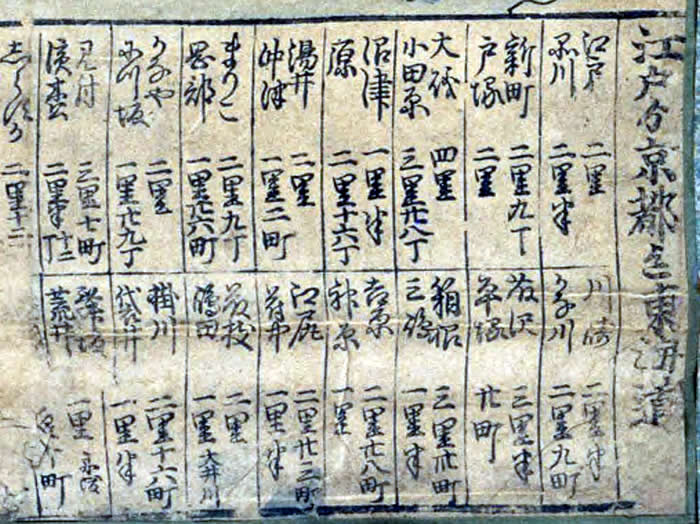 江戸ゟ京都迄東海道
江戸 二里 川崎 二里半
品川 二里半 かな川 二里九町
新町 二里九丁 藤沢 三里半
戸塚 二里 平塚 廿町
大磯 四里 箱根 三里廿八町
小田原 三里廿八丁 三嶋 一里半
沼津 一里半 吉原 二里廿八町
原 二里十六丁 神原 一里
湯井 二里 江尻 二里廿三町
沖津 一里二町 府中 一里半
まりこ 二里九丁 藤枝 二里
岡部 一里廿六町 嶋田 一里 大井川
かなや 二里 掛川 二里十六町
につ坂 一里廿九丁 袋井 一里半
見付 三里七町 舞坂 一里
濱松 二里半十二丁 荒井 町
しらすか 二里十二